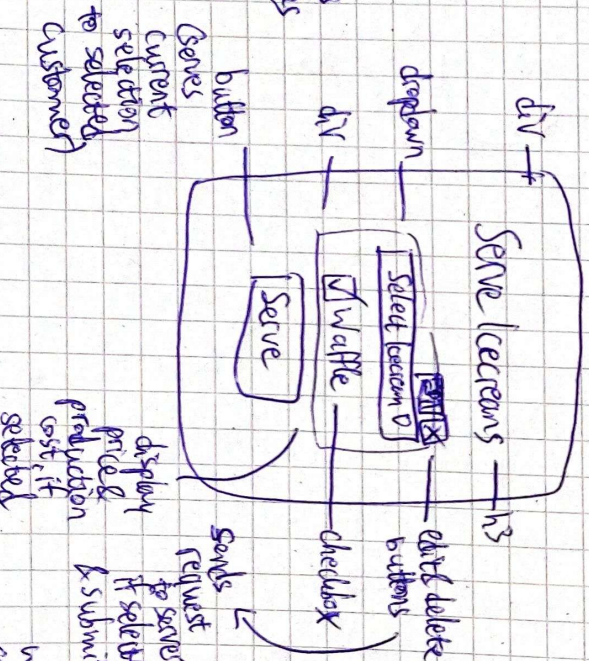 div
Serve Icecreams
h3
dropdown
Select Icecream
edit & delete
buttons
div
Waffle
checkbox
button
(serves
current
selection
to selected
customer)
Serve
display
price &
production
cost, if
selected
sends
request
to server
if select
& submi